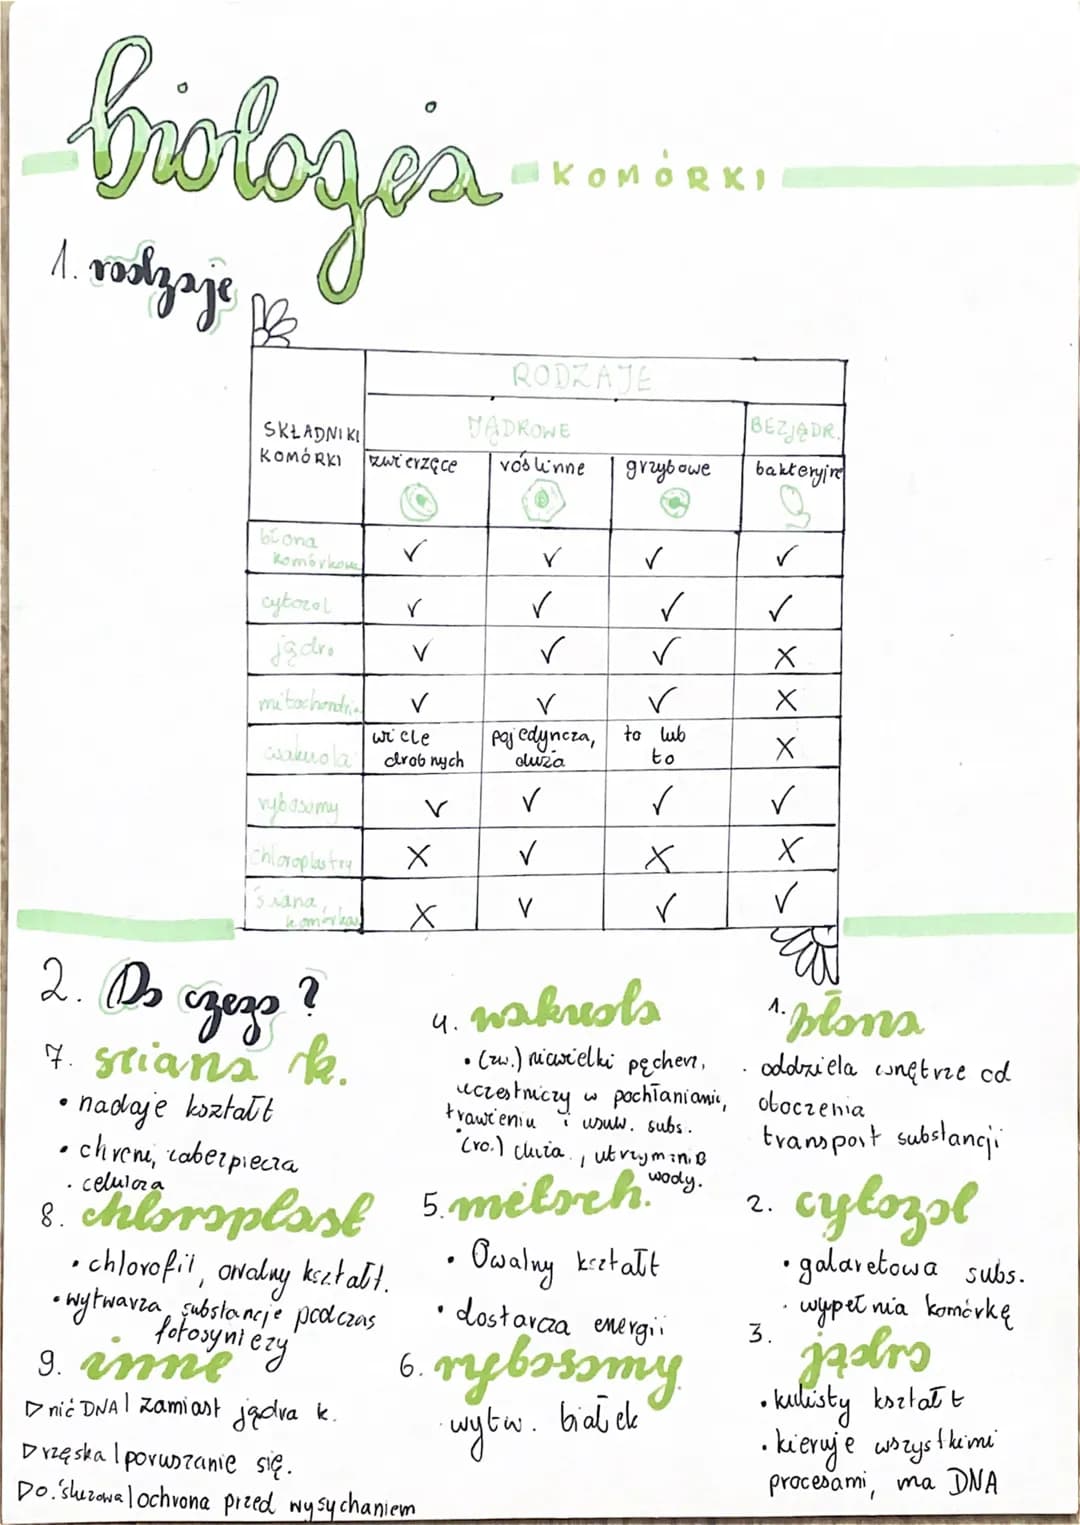 biologia - KOMÓRKI
1. rodzaje
RODZAJE
SKŁADNIKI KOMÓRKI
JĄDROWE
BEZJĄDR.
zwierzęce
roślinne
grzybowe
bakteryjne
błona komórkowa
✓ ✓ ✓ ✓
cytozol
✓ ✓ ✓ ✓
jądro
✓ ✓ ✓ X
mitochondria
✓ ✓ ✓ X
wakuola
wiele drobnych
pojedyncza, duża
to lub to
X
rybosomy
✓ ✓ ✓ ✓
chloroplasty
X ✓ X X
ściana komórkowa
X ✓ ✓ ✓
2. Do czego?
7. ściana k.
• nadaje kształt
• chroni, zabezpiecza
• celuloza
8. chloroplast
• chlorofil, owalny kształt.
• wytwarza substancje podczas
fotosyntezy
9. inne
▷ nić DNA | zamiast jądra k.
▷ rzęska | poruszanie się.
▷ o. śluzowa | ochrona przed wysychaniem
4. wakuola
• (zw.) niewielki pęcherz,
uczestniczy w pochłanianiu,
trawieniu i usuw. subs.
(ro.) duża, utrzymania
wody.
5. mitoch.
• Owalny kształt
• dostarcza energii
6. rybosomy
• wytw. białek
1. błona
• oddziela wnętrze od
otoczenia
transport substancji
2. cytozol
• galaretowa subs.
• wypełnia komórkę
3. jądro
• kulisty kształt
• kieruje wszystkimi
procesami, ma DNA